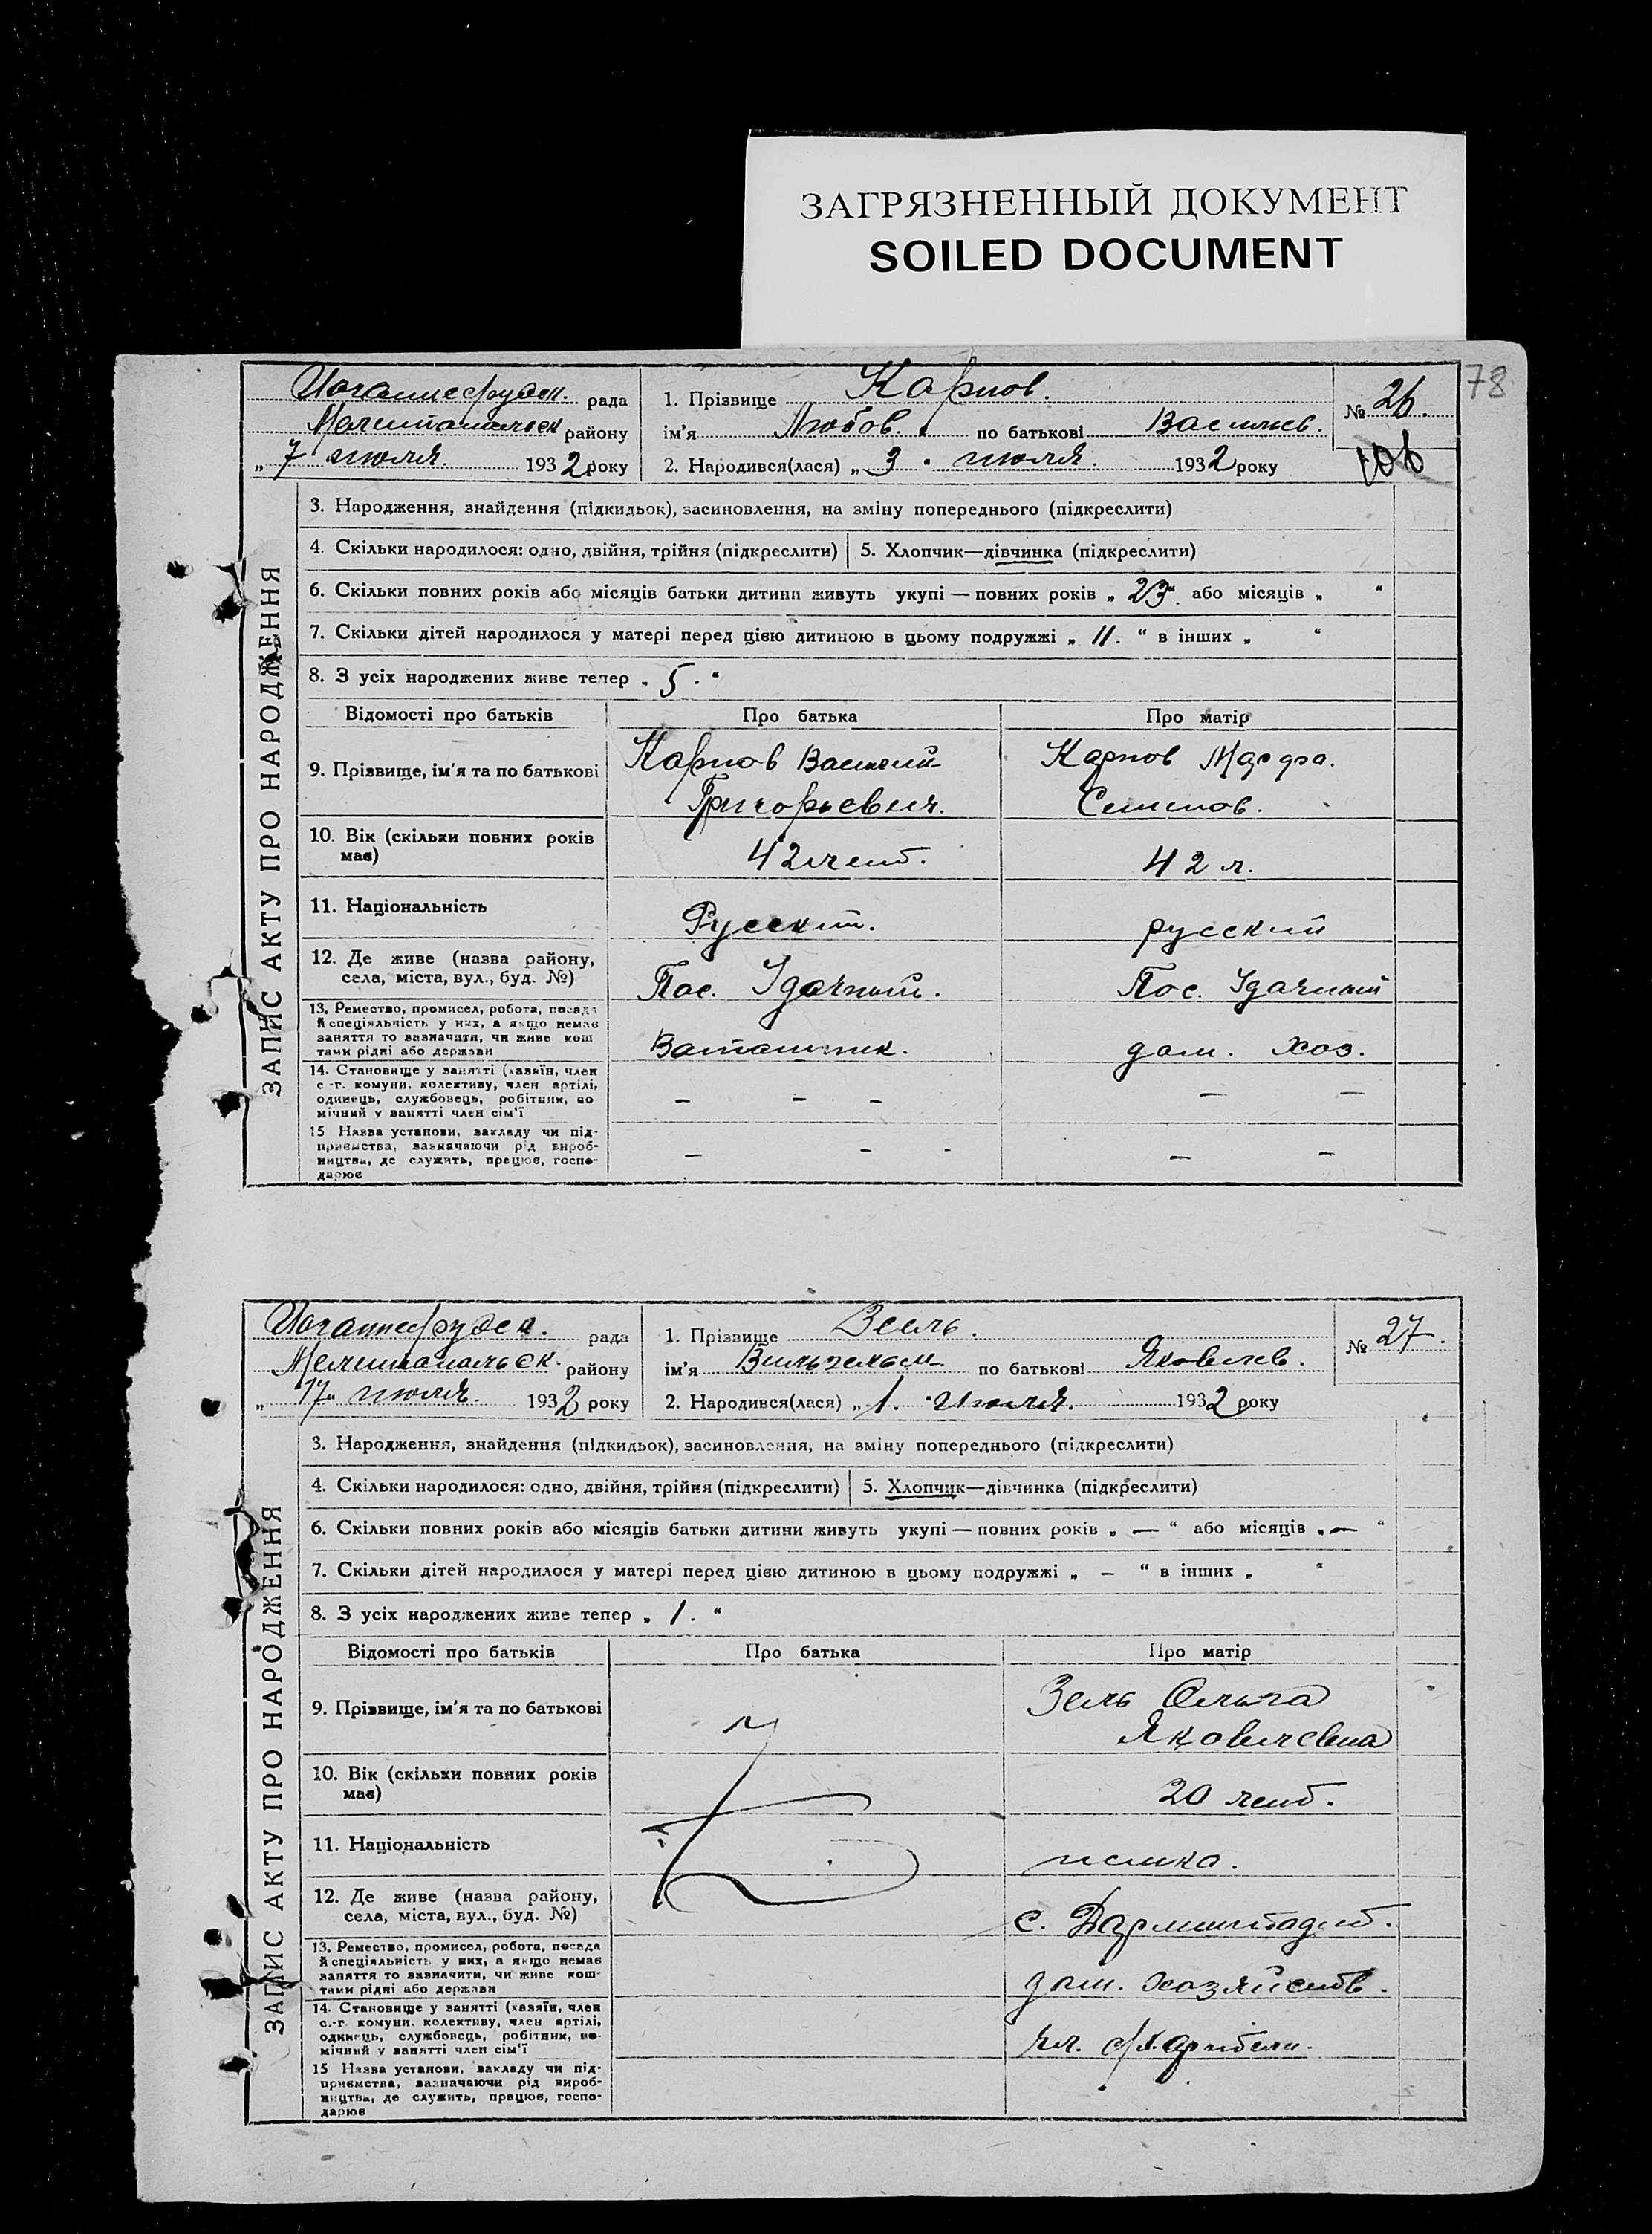 ЗАГРЯЗНЕННЫЙ ДОКУМЕНТ
SOILED DOCUMENT
78
Иоганнесруден. рада
Мелитопольск району
„ 7 июля. 1932 року
1. Прізвище Карпов.
ім'я Любов. по батькові Васильев.
2. Народився(лася) „ 3 " июля. 1932 року
№ 26.
106
ЗАПИС АКТУ ПРО НАРОДЖЕННЯ
3. Народження, знайдення (підкидьок), засиновлення, на зміну попереднього (підкреслити)
4. Скільки народилося: одно, двійня, трійня (підкреслити) 5. Хлопчик—дівчинка (підкреслити)
6. Скільки повних років або місяців батьки дитини живуть укупі — повних років „ 23 “ або місяців „ “
7. Скільки дітей народилося у матері перед цією дитиною в цьому подружжі „ 11. “ в інших „ “
8. З усіх народжених живе тепер „ 5. “
Відомості про батьків Про батька Про матір
9. Прізвище, ім'я та по батькові
Карпов Василий Григорьевич.
Карпов Марфа. Семенов.
10. Вік (скільки повних років має)
42 лет. 42 л.
11. Національність
Русский. русский
12. Де живе (назва району,
села, міста, вул., буд. №)
Пос. Удачный. Пос. Удачный
13. Ремество, промисел, робота, посада
й спеціяльність у них, а якщо немає
заняття то вазначити, чи живе кош
тами рідні або держави
дом. хоз.
14. Становище у занятті (хазяїн, член
с.-г. комуни, колективу, член артілі,
одинець, службовець, робітник, по
мічний у занятті член сім'ї
– – – – –
15 Назва установи, закладу чи під-
приємства, зазначаючи рід вироб-
ництва, де служить, працює, госпо-
дарює
– – - – –
Иоганнесруден. рада
Мелитопольск. району
„ 17 " июля. 1932 року
1. Прізвище Зель.
ім'я Вильгельм по батькові Яковлев.
2. Народився(лася) „ 1. " Июля. 1932 року
№ 27.
ЗАПИС АКТУ ПРО НАРОДЖЕННЯ
3. Народження, знайдення (підкидьок), засиновлення, на зміну попереднього (підкреслити)
4. Скільки народилося: одно, двійня, трійня (підкреслити) 5. Хлопчик—дівчинка (підкреслити)
6. Скільки повних років або місяців батьки дитини живуть укупі — повних років „ — “ або місяців „ — “
7. Скільки дітей народилося у матері перед цією дитиною в цьому подружжі „ – “ в інших „ “
8. З усіх народжених живе тепер „ 1. “
Відомості про батьків Про батька Про матір
9. Прізвище, ім'я та по батькові
Зель Ольга
Яковлевна
10. Вік (скільки повних років має)
20 лет.
11. Національність
немка.
12. Де живе (назва району,
села, міста, вул., буд. №)
с. Дармштадт.
13. Ремество, промисел, робота, посада
й спеціяльність у них, а якщо немає
заняття то вазначити, чи живе кош-
тами рідні або держави
дом. хозяйств.
14. Становище у занятті (хазяїн, член
с.-г. комуни, колективу, член артілі,
одинець, службовець, робітник, по-
мічний у занятті член сім'ї
чл. с/х. артели.
15 Назва установи, закладу чи під-
приємства, зазначаючи рід вироб-
ництва, де служить, працює, госпо-
дарює